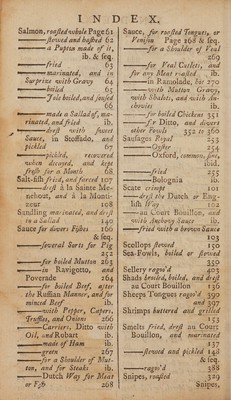 INDEX.
Salmon, roasted whole Page 61
— stewed and hashed 62
— a Pupton made of it,
ib. & seq.
— fried 63
— marinated, and in
Surprize with Gravy 64
— boiled 65
— Jole boiled, and soused
66
— made a Sallad of, ma-
rinated, and fried ib.
— drest with sweet
Sauce, in Stoffado, and
pickled 67
— pickled, recovered
when decayed, and kept
fresh for a Month 68
Salt-fish fried, and forced 107
— drest à la Sainte Me-
nehout, and à la Monti-
zeur 108
Sandling marinated, and drest
in a Sallad 140
Sauce for divers Fishes 166
& seq.
— several Sorts for Pig
252
— for boiled Mutton 263
— in Ravigotto, and
Poverade 264
— for boiled Beef, after
the Russian Manner, and for
minced Beef ib.
— with Pepper, Capers,
Truffles, and Onions 266
— Carriers, Ditto with
Oil, and Robart ib.
— made of Ham ib.
— green 267
— for a Shoulder of Mut-
ton, and for Steaks ib.
— Dutch Way for Meat
or Fish 268
Sauce, for roasted Tongues, or
Venison Page 268 & seq.
— for a Shoulder of Veal
269
— for Veal Cutlets, and
for any Meat roasted, ib.
— in Ramolade, hot 270
— with Mutton Gravy,
with Shalots, and with An-
chovies ib.
— for boiled Chicken 351
— for Ditto, and divers
other Fowls 352 to 360
Sausages Royal 255
— Oyster 254
— Oxford, common, fine,
fried 255
— Bolognia ib.
Scate crimpt 101
— drest the Dutch or Eng-
lish Way 102
— au Court Bouillon, and
with Anchovy Sauce ib.
— fried with a brown Sauce
103
Scollops stewed 150
Sea-Fowls, boiled or stewed
350
Sellery ragoo'd 403
Shads broiled, boiled, and drest
au Court Bouillon 156
Sheeps Tongues ragoo'd 390
and 397
Shrimps buttered and grilled
153
Smelts fried, drest au Court
Bouillon, and marinated
137
— stewed and pickled 148
& seq.
— ragoo'd 388
Snipes, roasted 329
Snipes,